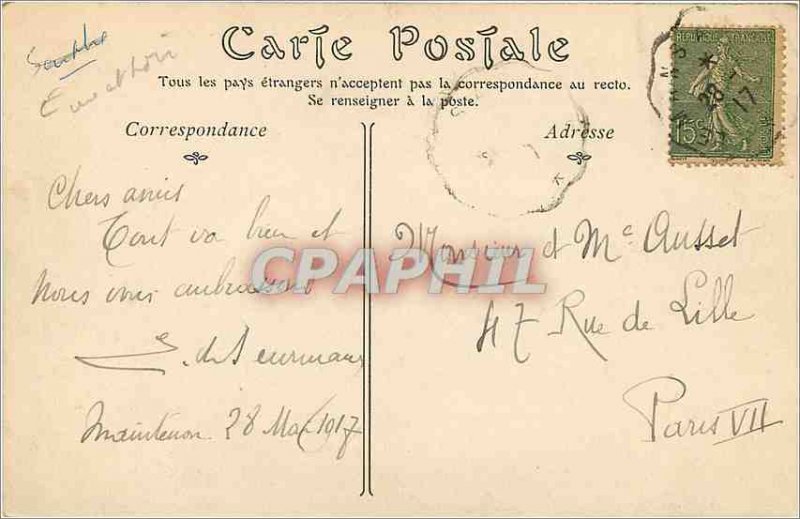 Carte Postale
Tous les pays étrangers n'acceptent pas la correspondance au recto.
Se renseigner à la poste.
Eure et Loir
REPUBLIQUE FRANÇAISE
15c
28 - 17
Correspondance
Adresse
Chers amis
Tout va bien et
nous vous embrassons
Maintenon 28 Mai 1917
Monsieur et Me Ausset
47 Rue de Lille
Paris VII
CPAPHIL